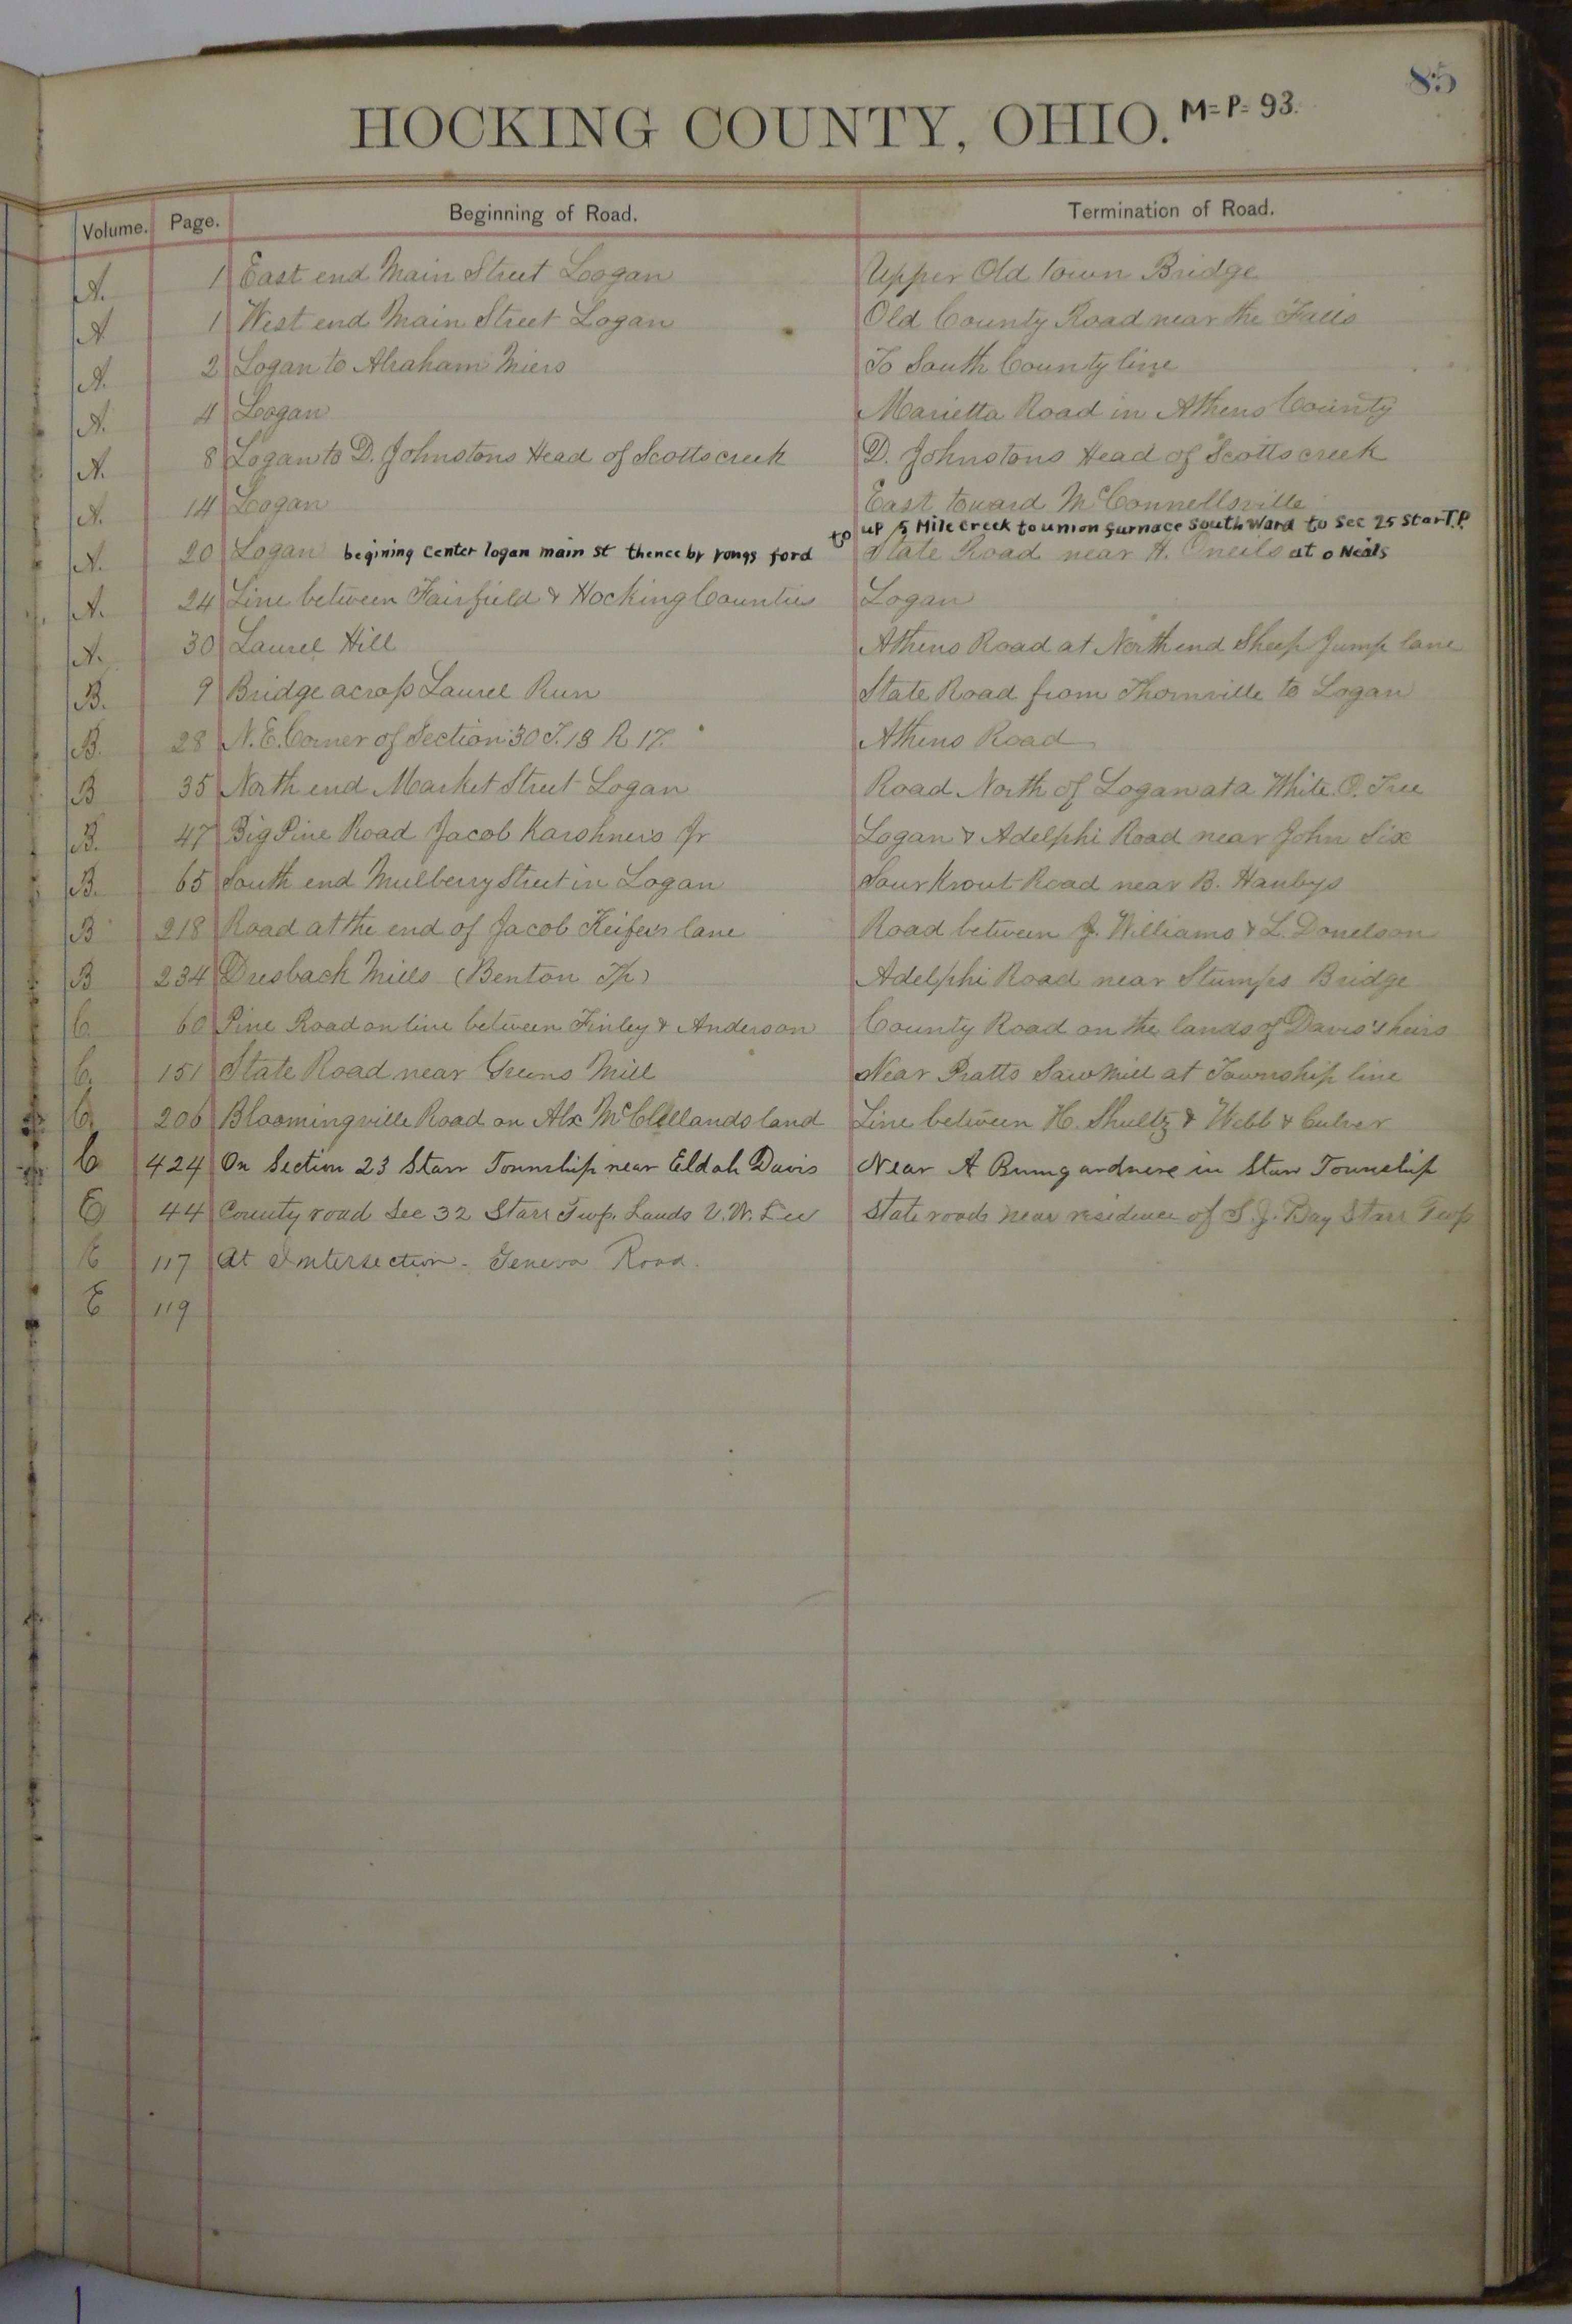 85
HOCKING COUNTY, OHIO. M=P=93.
Volume. Page. Beginning of Road. Termination of Road.
A. 1 East end Main Street Logan Upper Old Town Bridge
A 1 West end Main Street Logan Old County Road near the Falls
A. 2 Logan to Abraham Miers To South County line
A. 4 Logan Marietta Road in Athens County
A. 8 Logan to D. Johnstons Head of Scotts creek D. Johnstons Head of Scotts creek
A. 14 Logan East toward McConnellsville
to up 5 Mile Creek to union furnace South Ward to Sec 25 Star T.P.
A. 20 Logan begining Center logan main st thence by yongs ford State Road near H. Oneils at o Neals
A. 24 Line between Fairfield & Hocking Counties Logan
A. 30 Laurel Hill Athens Road at North end Sheep Jump lane
B. 9 Bridge across Laurel Run State Road from Thornville to Logan
B. 28 N.E. Corner of Section 30 T. 13 R 17. Athens Road
B 35 North end Market Street Logan Road North of Logan at a White O. Tree
B. 47 Big Pine Road Jacob Karshners Jr Logan & Adelphi Road near John Six
B. 65 South end Mulberry Street in Logan Sour Krout Road near B. Hanbys
B 218 Road at the end of Jacob Keifers lane Road between J. Williams & L. Donelson
B 234 Dresback Mills (Benton Tp) Adelphi Road near Stumps Bridge
C. 60 Pine Road on line between Finley & Anderson County Road on the lands of Davis's heirs
C. 151 State Road near Greens Mill Near Pratts Saw Mill at Township line
C. 206 Bloomingville Road on Alx McClellands land Line between H. Shultz & Webb & Culver
C 424 On Section 23 Starr Township near Eldah Davis Near A Bumgardners in Starr Township
E 44 County road Sec 32 Starr Twp. Lands V. W. Lee State roads near residence of S. J. Day Starr Twp
E 117 At Intersection - Geneva Road.
E 119